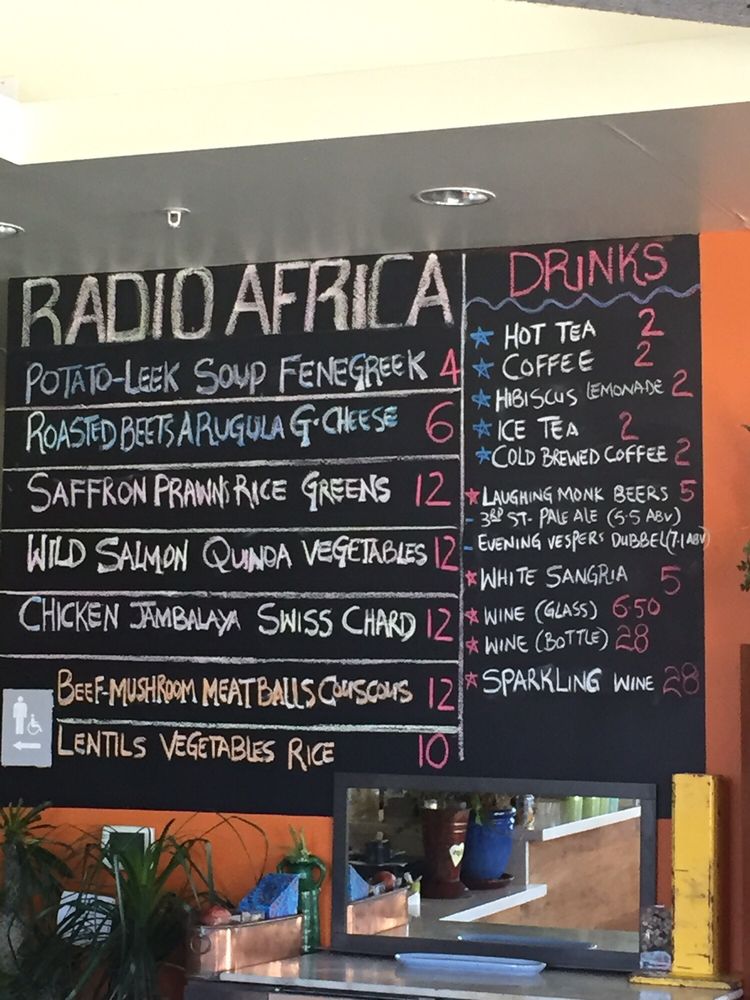 RADIO AFRICA
POTATO-LEEK SOUP FENEGREEK 4
ROASTED BEETS ARUGULA G-CHEESE 6
SAFFRON PRAWNS RICE GREENS 12
WILD SALMON QUINOA VEGETABLES 12
CHICKEN JAMBALAYA SWISS CHARD 12
BEEF-MUSHROOM MEATBALLS COUSCOUS 12
LENTILS VEGETABLES RICE 10
DRINKS
HOT TEA 2
COFFEE 2
HIBISCUS LEMONADE 2
ICE TEA 2
COLD BREWED COFFEE 2
LAUGHING MONK BEERS 5
- 3RD ST- PALE ALE (5.5 ABV)
- EVENING VESPERS DUBBEL (7.1 ABV)
WHITE SANGRIA 5
WINE (GLASS) 6.50
WINE (BOTTLE) 28
SPARKLING WINE 28